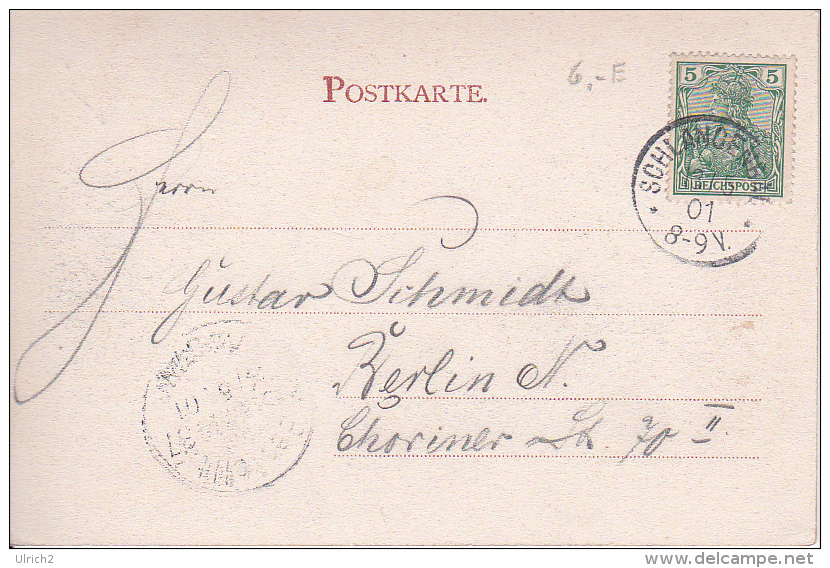 POSTKARTE.
6,-E
5 5
REICHSPOST
* SCHLANGENB *
01
8-9 V.
Herrn
Gustav Schmidt
Berlin N.
Choriner St. 70 II
01
37
Ulrich2
www.delcampe.net